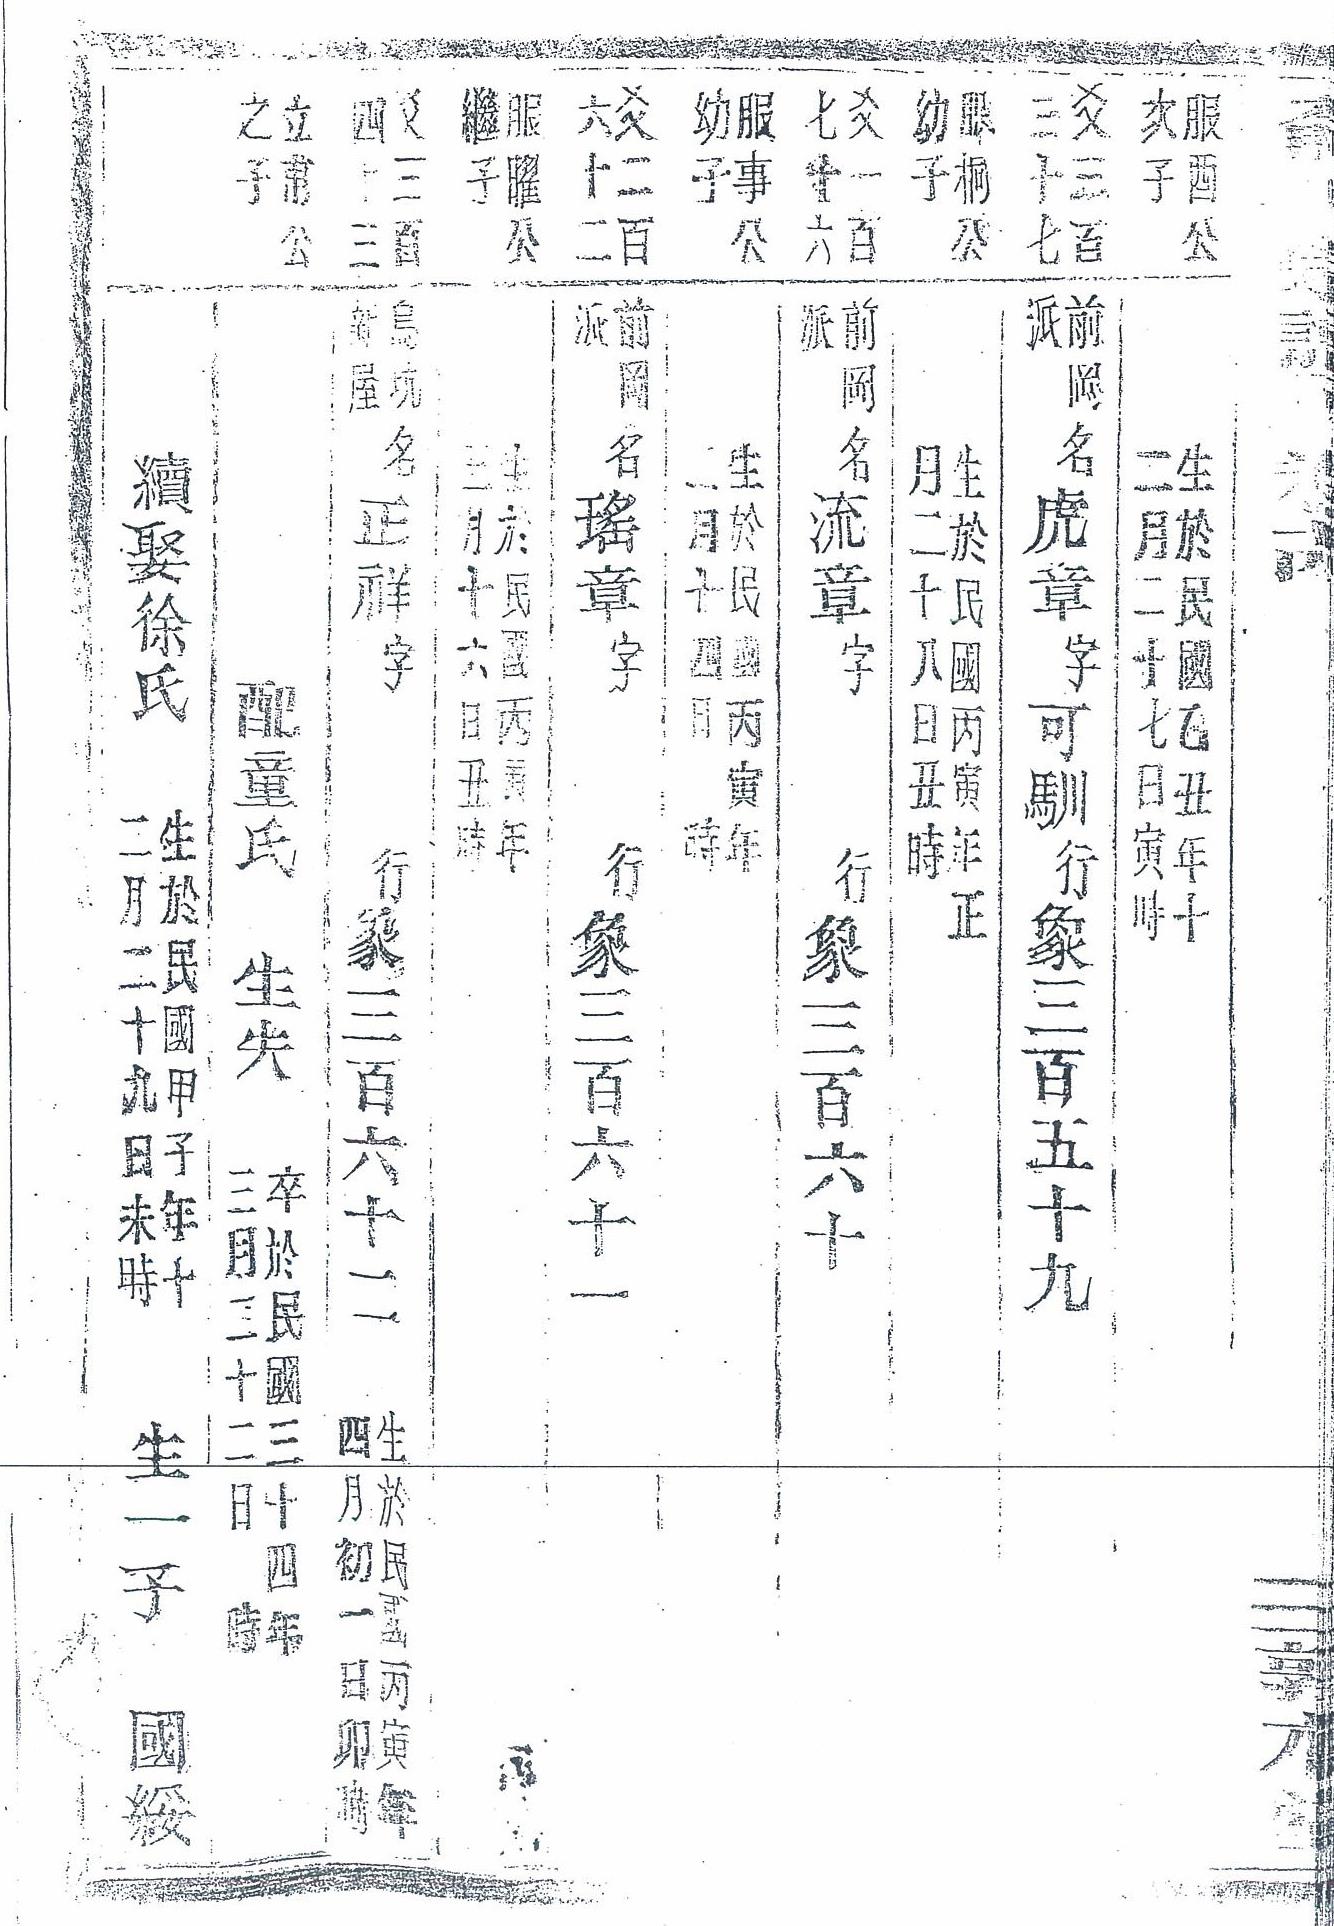 服酉公
次子
生於民國乙丑年十
二月二十七日寅時
爻三百
三十七
前岡
派
名虎章字可馴行象三百五十九
服桐公
幼子
生於民國丙寅年正
月二十八日丑時
爻一百
七十六
前岡
派
名流章字 行象三百六十
服事公
幼子
生於民國丙寅年
二月十四日 時
爻二百
六十二
前岡
派
名瑤章字 行象三百六十一
服曜公
繼子
生於民國丙寅年
三月十六日丑時
爻三百
四十三
烏坑
新屋
名正祥字 行象三百六十二
生於民國丙寅年
四月初一日卯時
立肅公
之子
配童氏 生失
卒於民國三十四年
三月三十二日 時
續娶徐氏
生於民國甲子年十
二月二十九日未時
生一子 國綏